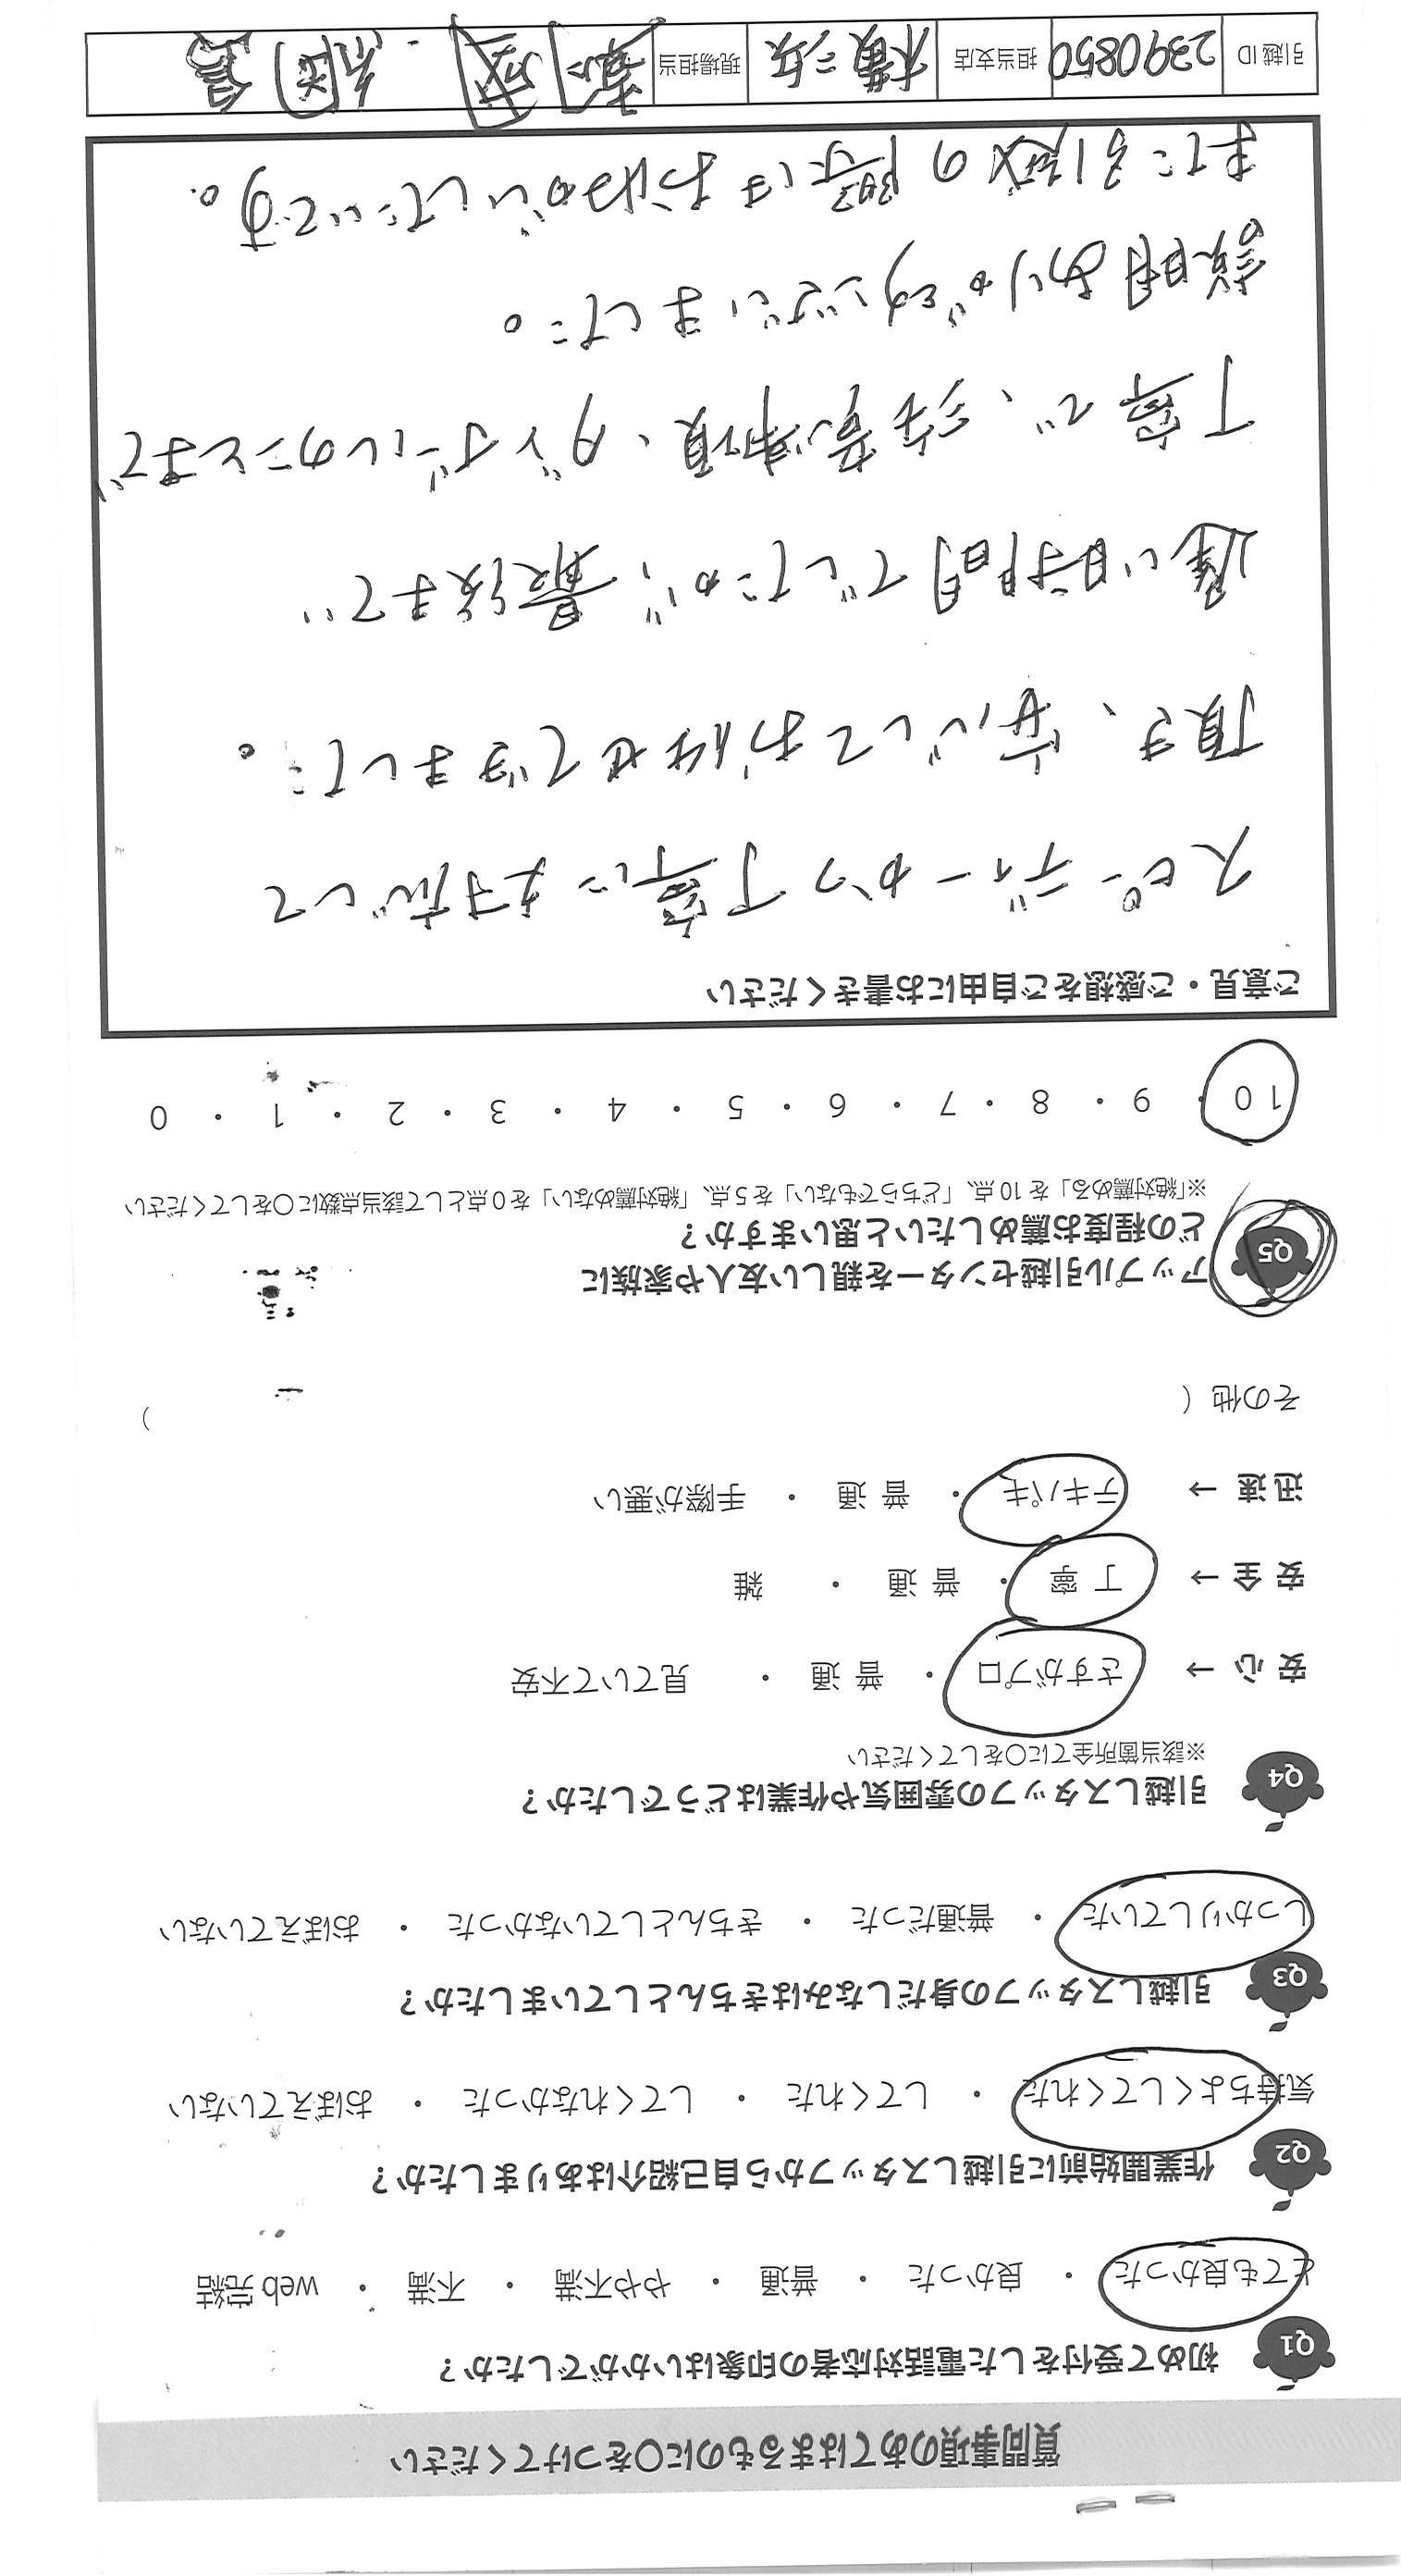 質問事項のあてはまるものに○をつけてください
Q1 初めて受付をした電話対応者の印象はいかがでしたか？
とても良かった ・ 良かった ・ 普通 ・ やや不満 ・ 不満 ・ web 完結
Q2 作業開始前に引越しスタッフから自己紹介はありましたか？
気持ちよくしてくれた ・ してくれた ・ してくれなかった ・ おぼえていない
Q3 引越しスタッフの身だしなみはきちんとしていましたか？
しっかりしていた ・ 普通だった ・ きちんとしていなかった ・ おぼえていない
Q4 引越しスタッフの雰囲気や作業はどうでしたか？
※該当箇所全てに○をしてください
安 心 → さすがプロ ・ 普 通 ・ 見ていて不安
安 全 → 丁 寧 ・ 普 通 ・ 雑
迅 速 → テキパキ ・ 普 通 ・ 手際が悪い
その他（ ）
Q5 アップル引越センターを親しい友人や家族に
どの程度お薦めしたいと思いますか？
※「絶対薦める」を 10 点、「どちらでもない」を 5 点、「絶対薦めない」を 0 点として該当点数に○をしてください
10 ・ 9 ・ 8 ・ 7 ・ 6 ・ 5 ・ 4 ・ 3 ・ 2 ・ 1 ・ 0
ご意見・ご感想をご自由にお書きください
スピーディーかつ丁寧に対応して
頂き、安心してお任せできました。
遅い時間でしたが、最後まで
丁寧で、注意事項、ダンボールのことまで
説明ありがとうございました。
また引越の際はお願いしたいです。
引越 ID 2390850 担当支店 横二坂 現場担当